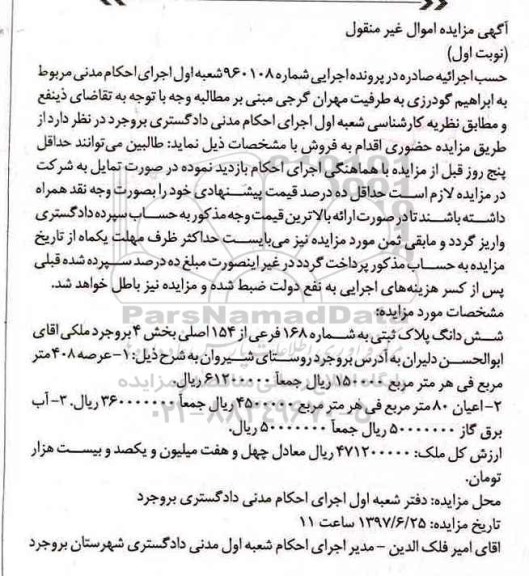 آگهی مزایده اموال غیر منقول
(نوبت اول)
حسب اجرائیه صادره در پرونده اجرایی شماره ۹۶۰۱۰۸شعبه اول اجرای احکام مدنی مربوط
به ابراهیم گودرزی به طرفیت مهران گرجی مبنی بر مطالبه وجه با توجه به تقاضای ذینفع
و مطابق نظریه کارشناسی شعبه اول اجرای احکام مدنی دادگستری بروجرد در نظر دارد از
طریق مزایده حضوری اقدام به فروش با مشخصات ذیل نماید: طالبین می‌توانند حداقل
پنج روز قبل از مزایده با هماهنگی اجرای احکام بازدید نموده در صورت تمایل به شرکت
در مزایده لازم است حداقل ده درصد قیمت پیشنهادی خود را بصورت وجه نقد همراه
داشته باشند تا در صورت ارائه بالاترین قیمت وجه مذکور به حساب سپرده دادگستری
واریز گردد و مابقی ثمن مورد مزایده نیز می‌بایست حداکثر ظرف مهلت یکماه از تاریخ
مزایده به حساب مذکور پرداخت گردد در غیر اینصورت مبلغ ده درصد سپرده شده قبلی
پس از کسر هزینه‌های اجرایی به نفع دولت ضبط شده و مزایده نیز باطل خواهد شد.
مشخصات مورد مزایده:
ParsNamadData
شش دانگ پلاک ثبتی به شماره ۱۶۸ فرعی از ۱۵۴ اصلی بخش ۴ بروجرد ملکی اقای
ابوالحسن دلیران به آدرس بروجرد روستای شیروان به شرح ذیل: ۱- عرصه ۴۰۸ متر
مربع فی هر متر مربع ۱۵۰۰۰۰ ریال جمعاً ۶۱۲۰۰۰۰۰ ریال.
۲- اعیان ۸۰ متر مربع فی هر متر مربع ۴۵۰۰۰۰۰ ریال جمعاً ۳۶۰۰۰۰۰۰۰ ریال. ۳- آب
برق گاز ۵۰۰۰۰۰۰۰ ریال جمعاً ۵۰۰۰۰۰۰۰ ریال.
۰۲۱-۸۸۳۴۹۶۷۰-۵
ارزش کل ملک: ۴۷۱۲۰۰۰۰۰ ریال معادل چهل و هفت میلیون و یکصد و بیست هزار
تومان.
محل مزایده: دفتر شعبه اول اجرای احکام مدنی دادگستری بروجرد
تاریخ مزایده: ۱۳۹۷/۶/۲۵ ساعت ۱۱
اقای امیر فلک الدین - مدیر اجرای احکام شعبه اول مدنی دادگستری شهرستان بروجرد